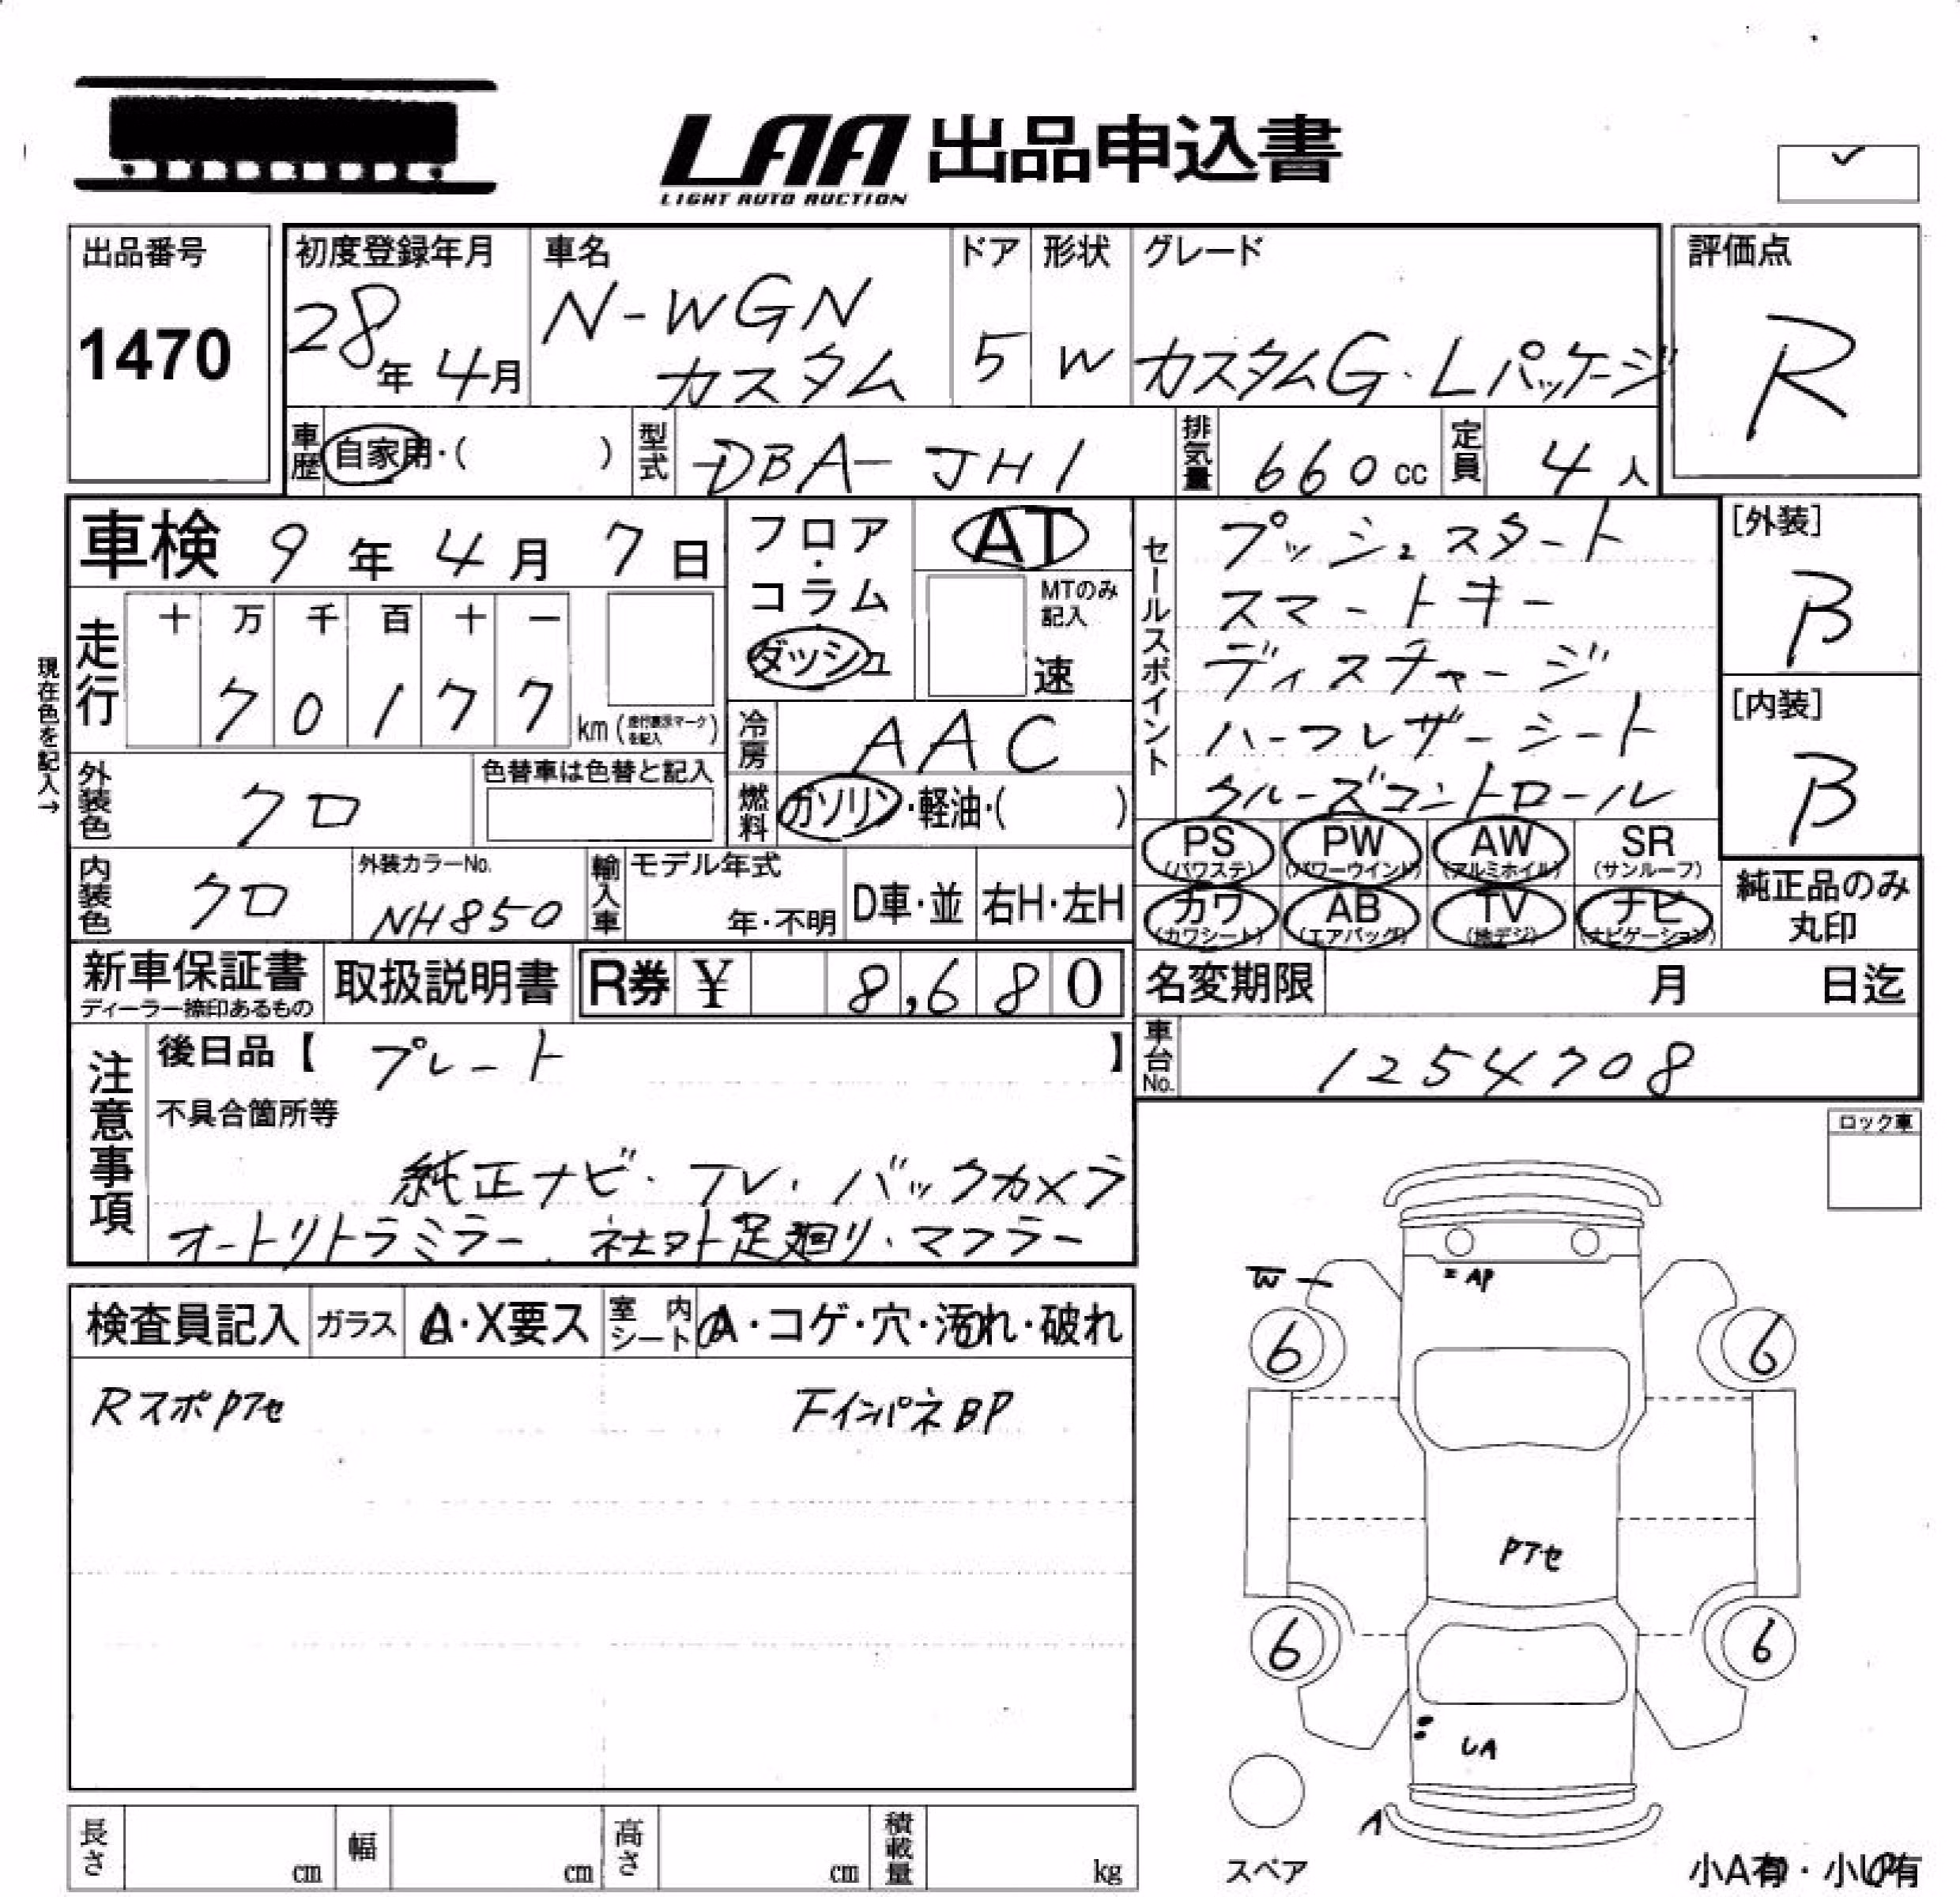 LAA 出品申込書
LIGHT AUTO AUCTION
出品番号
1470
初度登録年月
28年 4月
車名
N-WGN
カスタム
ドア
5
形状
W
グレード
カスタムG・Lパッケージ
評価点
R
車歴 自家用・( )
型式 DBA-JH1
排気量 660cc
定員 4人
車検 9年 4月 7日
フロア・コラム・ダッシュ
AT
MTのみ記入
速
セールスポイント
プッシュスタート
スマートキー
ディスチャージ
ハーフレザーシート
クルーズコントロール
[外装]
B
[内装]
B
現在色を記入→
走行
十 万 千 百 十 一
7 0 1 7 7 km (走行表示マークを記入)
冷房 AAC
燃料 ガソリン・軽油・( )
外装色 クロ
色替車は色替と記入
内装色 クロ
外装カラーNo.
NH850
輸入車
モデル年式
年・不明
D車・並
右H・左H
PS (パワステ)
PW (パワーウインド)
AW (アルミホイル)
SR (サンルーフ)
カワ (カワシート)
AB (エアバッグ)
TV (地デジ)
ナビ (ナビゲーション)
純正品のみ
丸印
新車保証書
ディーラー捺印あるもの
取扱説明書
R券 ¥ 8,680
名変期限 月 日迄
車台No. 1254708
注意事項
後日品【 プレート 】
不具合箇所等
純正ナビ・TV・バックカメラ
オートリトラミラー
足廻り・マフラー
ロック車
検査員記入
ガラス A・X要ス
室内シート A・コゲ・穴・汚れ・破れ
Rスポpアセ
FインパネBP
W
AP
6
6
pアセ
6
6
UA
A
スペア
長さ cm
幅 cm
高さ cm
積載量 kg
小A有・小U有